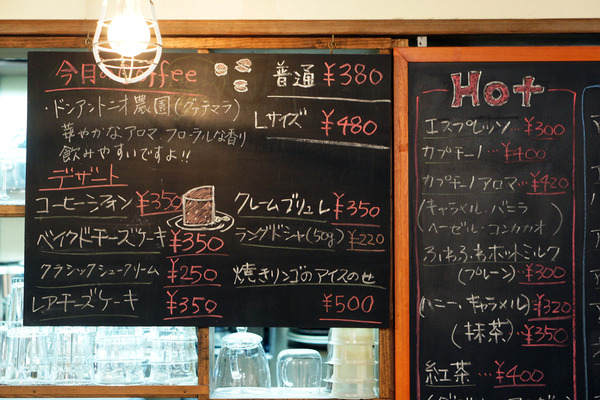 今日のCoffee
普通 ¥380
・ドンアントニオ農園(グァテマラ)
Lサイズ ¥480
華やかなアロマ フローラルな香り
飲みやすいですよ!!
デザート
コーヒーシフォン ¥350
クレームブリュレ ¥350
ベイクドチーズケーキ ¥350
ラングドシャ(50g) ¥220
クラシックシュークリーム ¥250
焼きリンゴのアイスのせ
¥500
レアチーズケーキ ¥350
Hot
エスプレッソ…¥300
カプチーノ…¥400
カプチーノアロマ…¥420
(キャラメル・バニラ
ヘーゼル・コンカカオ)
ふわふわホットミルク
(プレーン)…¥300
(ハニー、キャラメル)…¥320
(抹茶)…¥350
紅茶…¥400